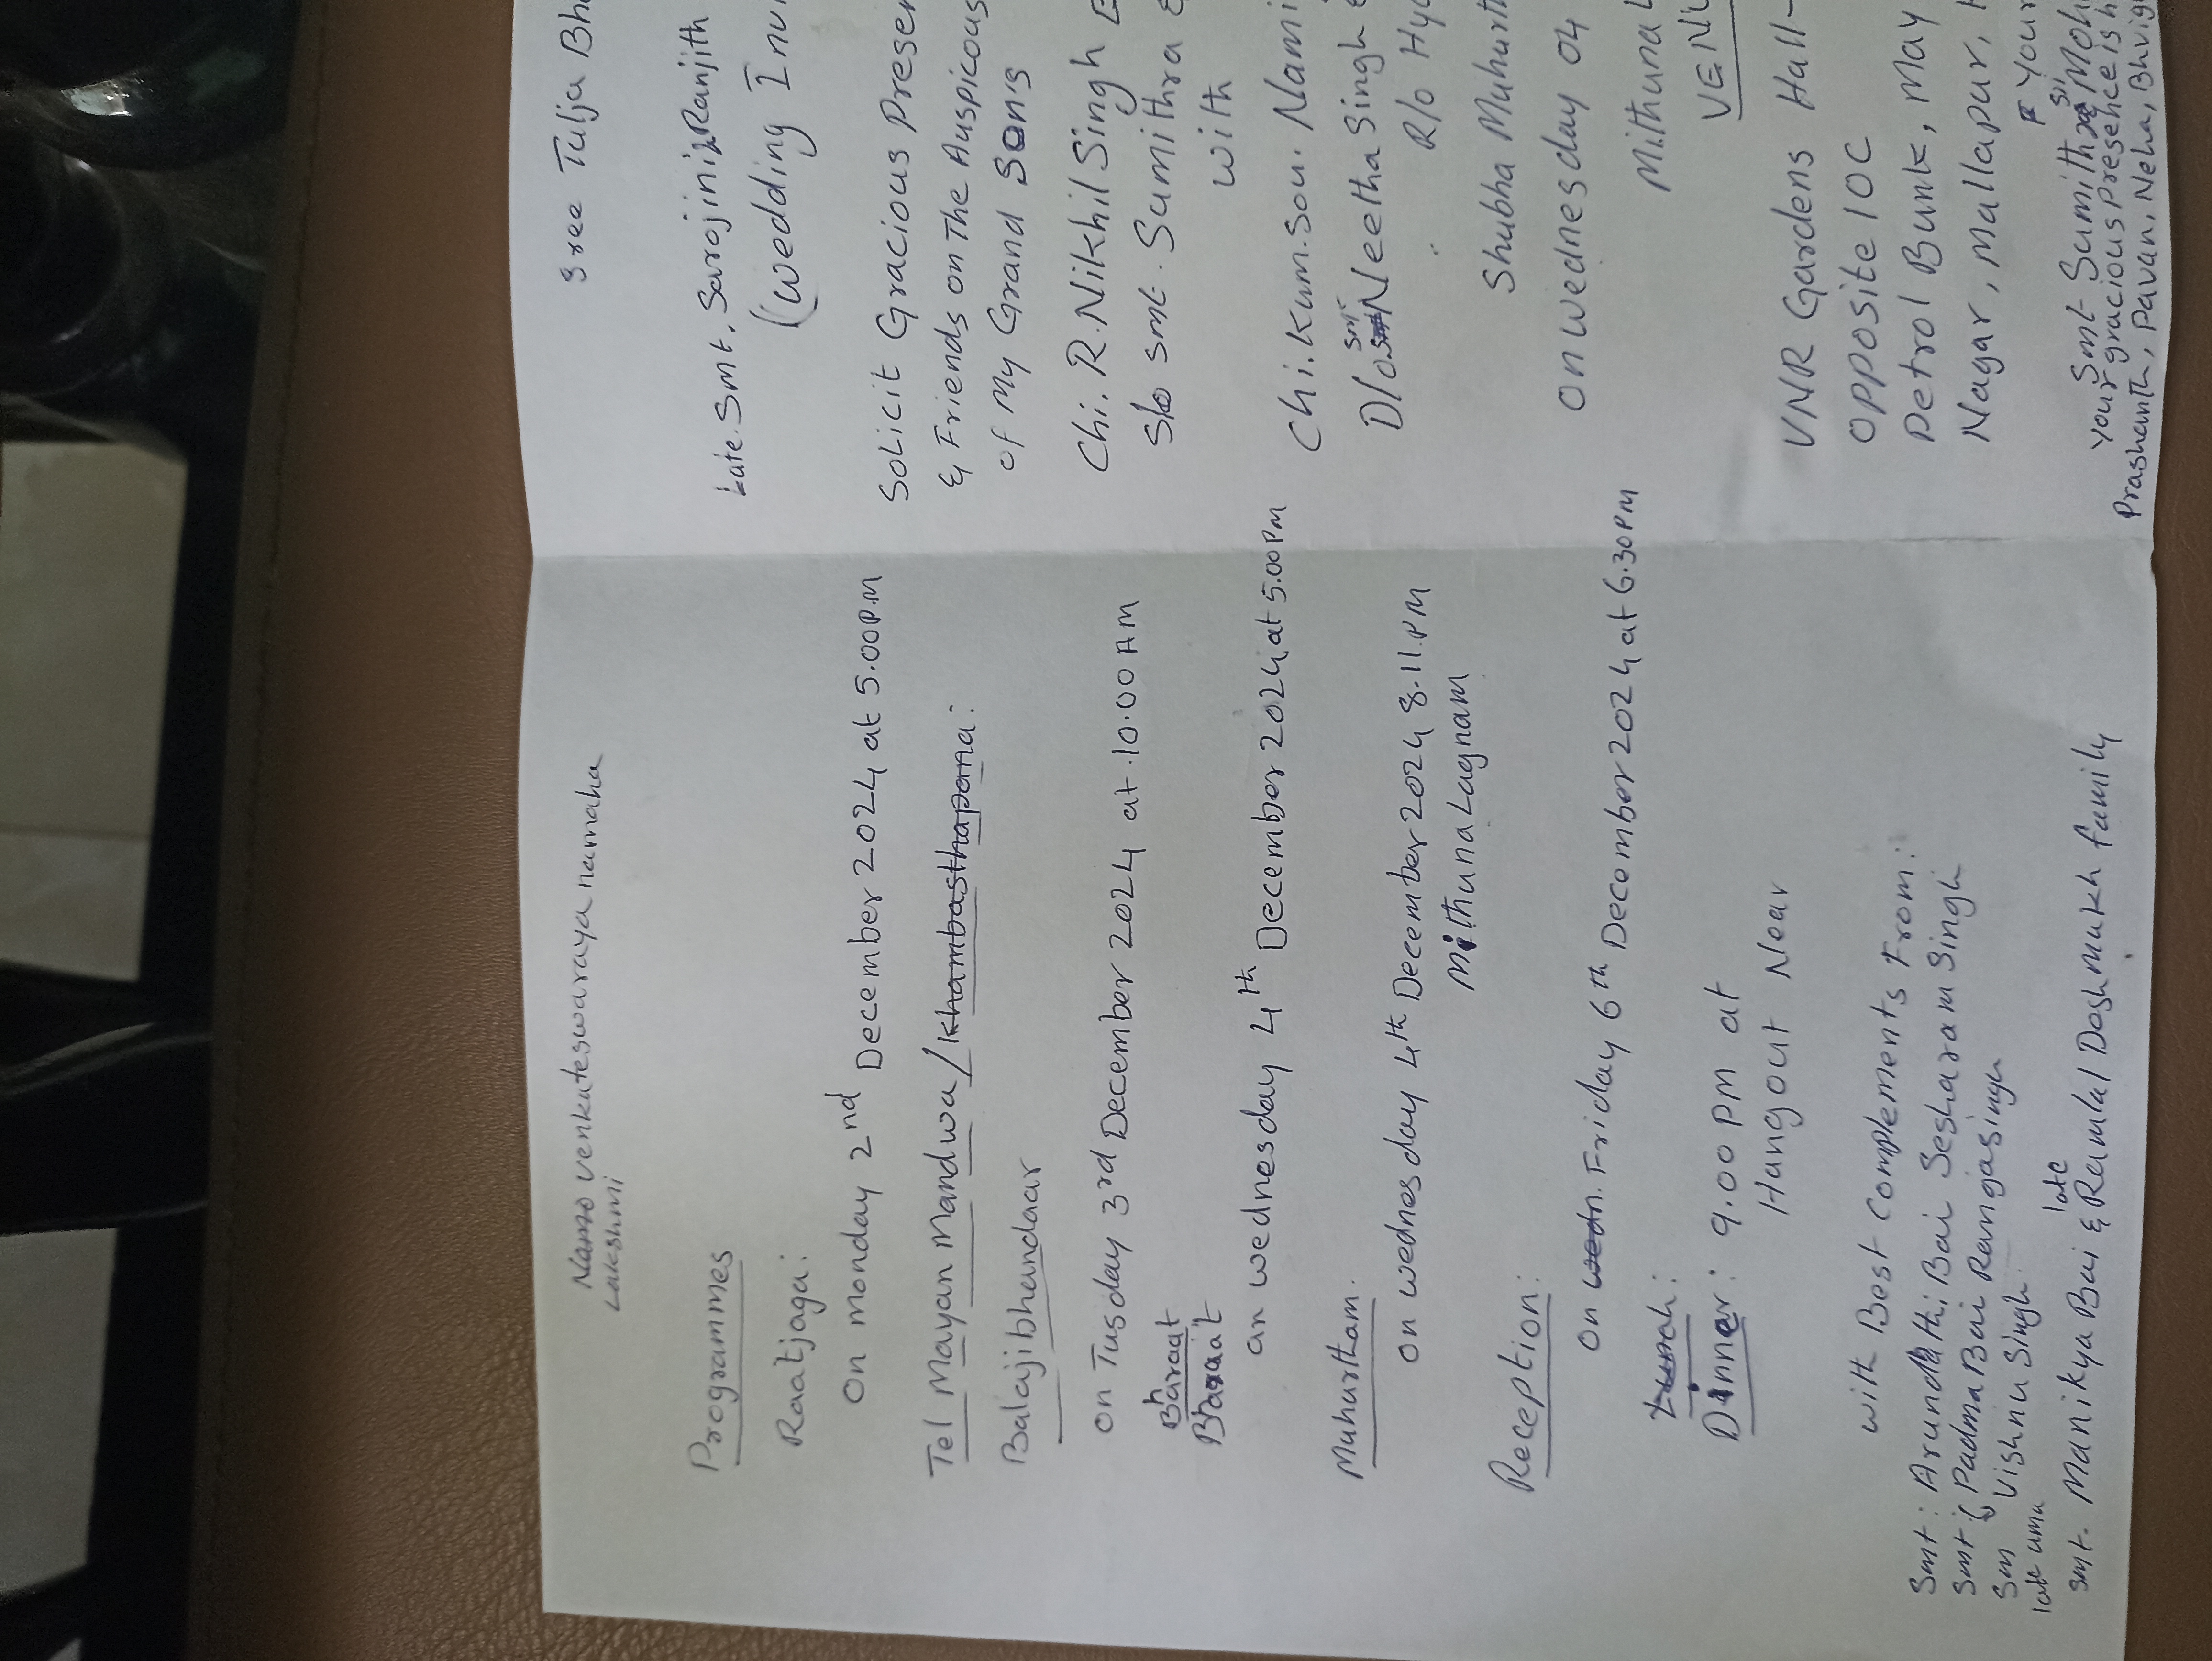 Namo venkateswaraya namaha
Lakshmi
Programmes
Raatjaga:
On monday 2nd December 2024 at 5.00P.M
Tel Mayan Mandwa/Khambasthapana:
Balajibhandaar
On Tusday 3rd December 2024 at 10.00AM
Bharaat
Baraat
on wednesday 4th December 2024 at 5.00PM
Muhurtham.
On wednesday 4th December 2024 8.11.PM
Mithuna Lagnam
Reception:
On wedn. Friday 6th December 2024 at 6.30PM
Lunch:
Dinner: 9.00 PM at
Hangout Near
with Best Complements From:
Smt: Arundathi Bai Seshara m Singh
Smt: Padma Bai Rangasingh
Vishnu Singh
late uma
late
Smt. Manikya Bai & Ramlal Deshmukh family
Sree Tulja Bha
Late. Smt. Sarojini & Ranjith
(wedding Invi
Solicit Gracious Presen
& Friends on The Auspicous
of My Grand Sons
Chi. R. Nikhil Singh
S/o smt. Sumithra &
with
Chi. Kum. Sou. Nami
D/o Smt Neetha Singh &
R/o Hyd
Shubha Muhurth
On wednesday 04
Mithuna L
VENU
VNR Gardens Hall-
Opposite IOC
Petrol Bunk, May
Nagar, Mallapur, H
Your
Smt Sumithra Moh
Your gracious Presence is h
Prashanth, Pavan, Neha, Bhvig